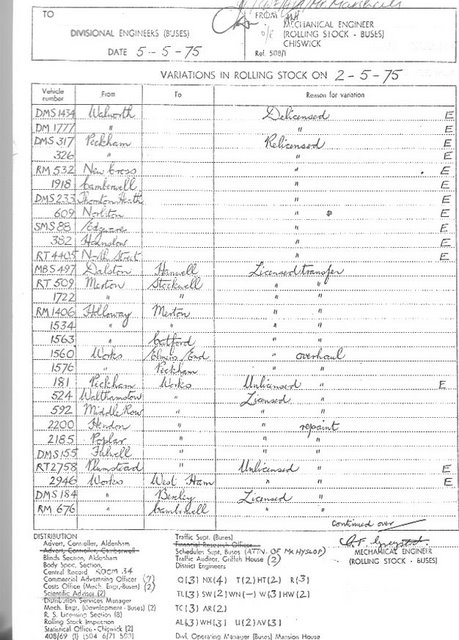 TO
DIVISIONAL ENGINEERS (BUSES)
DATE 5-5-75
FROM
MECHANICAL ENGINEER
(ROLLING STOCK - BUSES)
CHISWICK
Ref. 508/1
VARIATIONS IN ROLLING STOCK ON 2-5-75
Vehicle number From To Reason for variation
DMS 1434 Walworth Delicensed E
DM 1777 " " E
DMS 317 Peckham Relicensed E
326 " " E
RM 532 New Cross " E
1918 Camberwell " E
DMS 233 Thornton Heath " E
609 Norbiton " E
SMS 88 Edgware " E
382 Hounslow " E
RT 4405 North Street " E
MBS 497 Dalston Hanwell Licensed transfer
RT 509 Merton Stockwell " "
1722 " " " "
RM 1406 Holloway Merton " "
1534 " " " "
1563 " Catford " "
1560 Works Elmers End " overhaul
1576 " Peckham " "
181 Peckham Works Unlicensed " E
524 Walthamstow " Licensed "
592 Middle Row " " "
2200 Hendon " " repaint
2185 Poplar " " "
DMS 155 Fulwell " " "
RT 2758 Plumstead " Unlicensed " E
2946 Works West Ham " " E
DMS 184 " Bexley Licensed "
RM 676 " Camberwell " "
continued over
MECHANICAL ENGINEER
(ROLLING STOCK - BUSES)
DISTRIBUTION
Advert, Controller, Aldenham
Advert, Controller, Camberwell
Blinds Section, Aldenham
Body Spec. Section,
Central Record ROOM 34
Commercial Advertising Officer (7)
Costs Office (Mech. Engr. Buses) (2)
Scientific Advisor (2)
Distribution Services Manager
Mech. Engr. (Development - Buses) (2)
R. S. Licensing Section (8)
Rolling Stock Inspection
Statistical Office - Chiswick (2)
Traffic Supt. (Buses)
Financial Research Officer
Schedules Supt. (Buses) (ATTN. OF MR HYSLOP)
Traffic Auditor, Griffith House (2)
District Engineers
Q(3) NX(4) T(2) HT(2) R(3)
TL(3) SW(2) WN(-) W(3) HW(2)
TC(3) AR(2)
AL(3) WH(3) U(2) AV(3)
Divl. Operating Manager (Buses) Mansion House